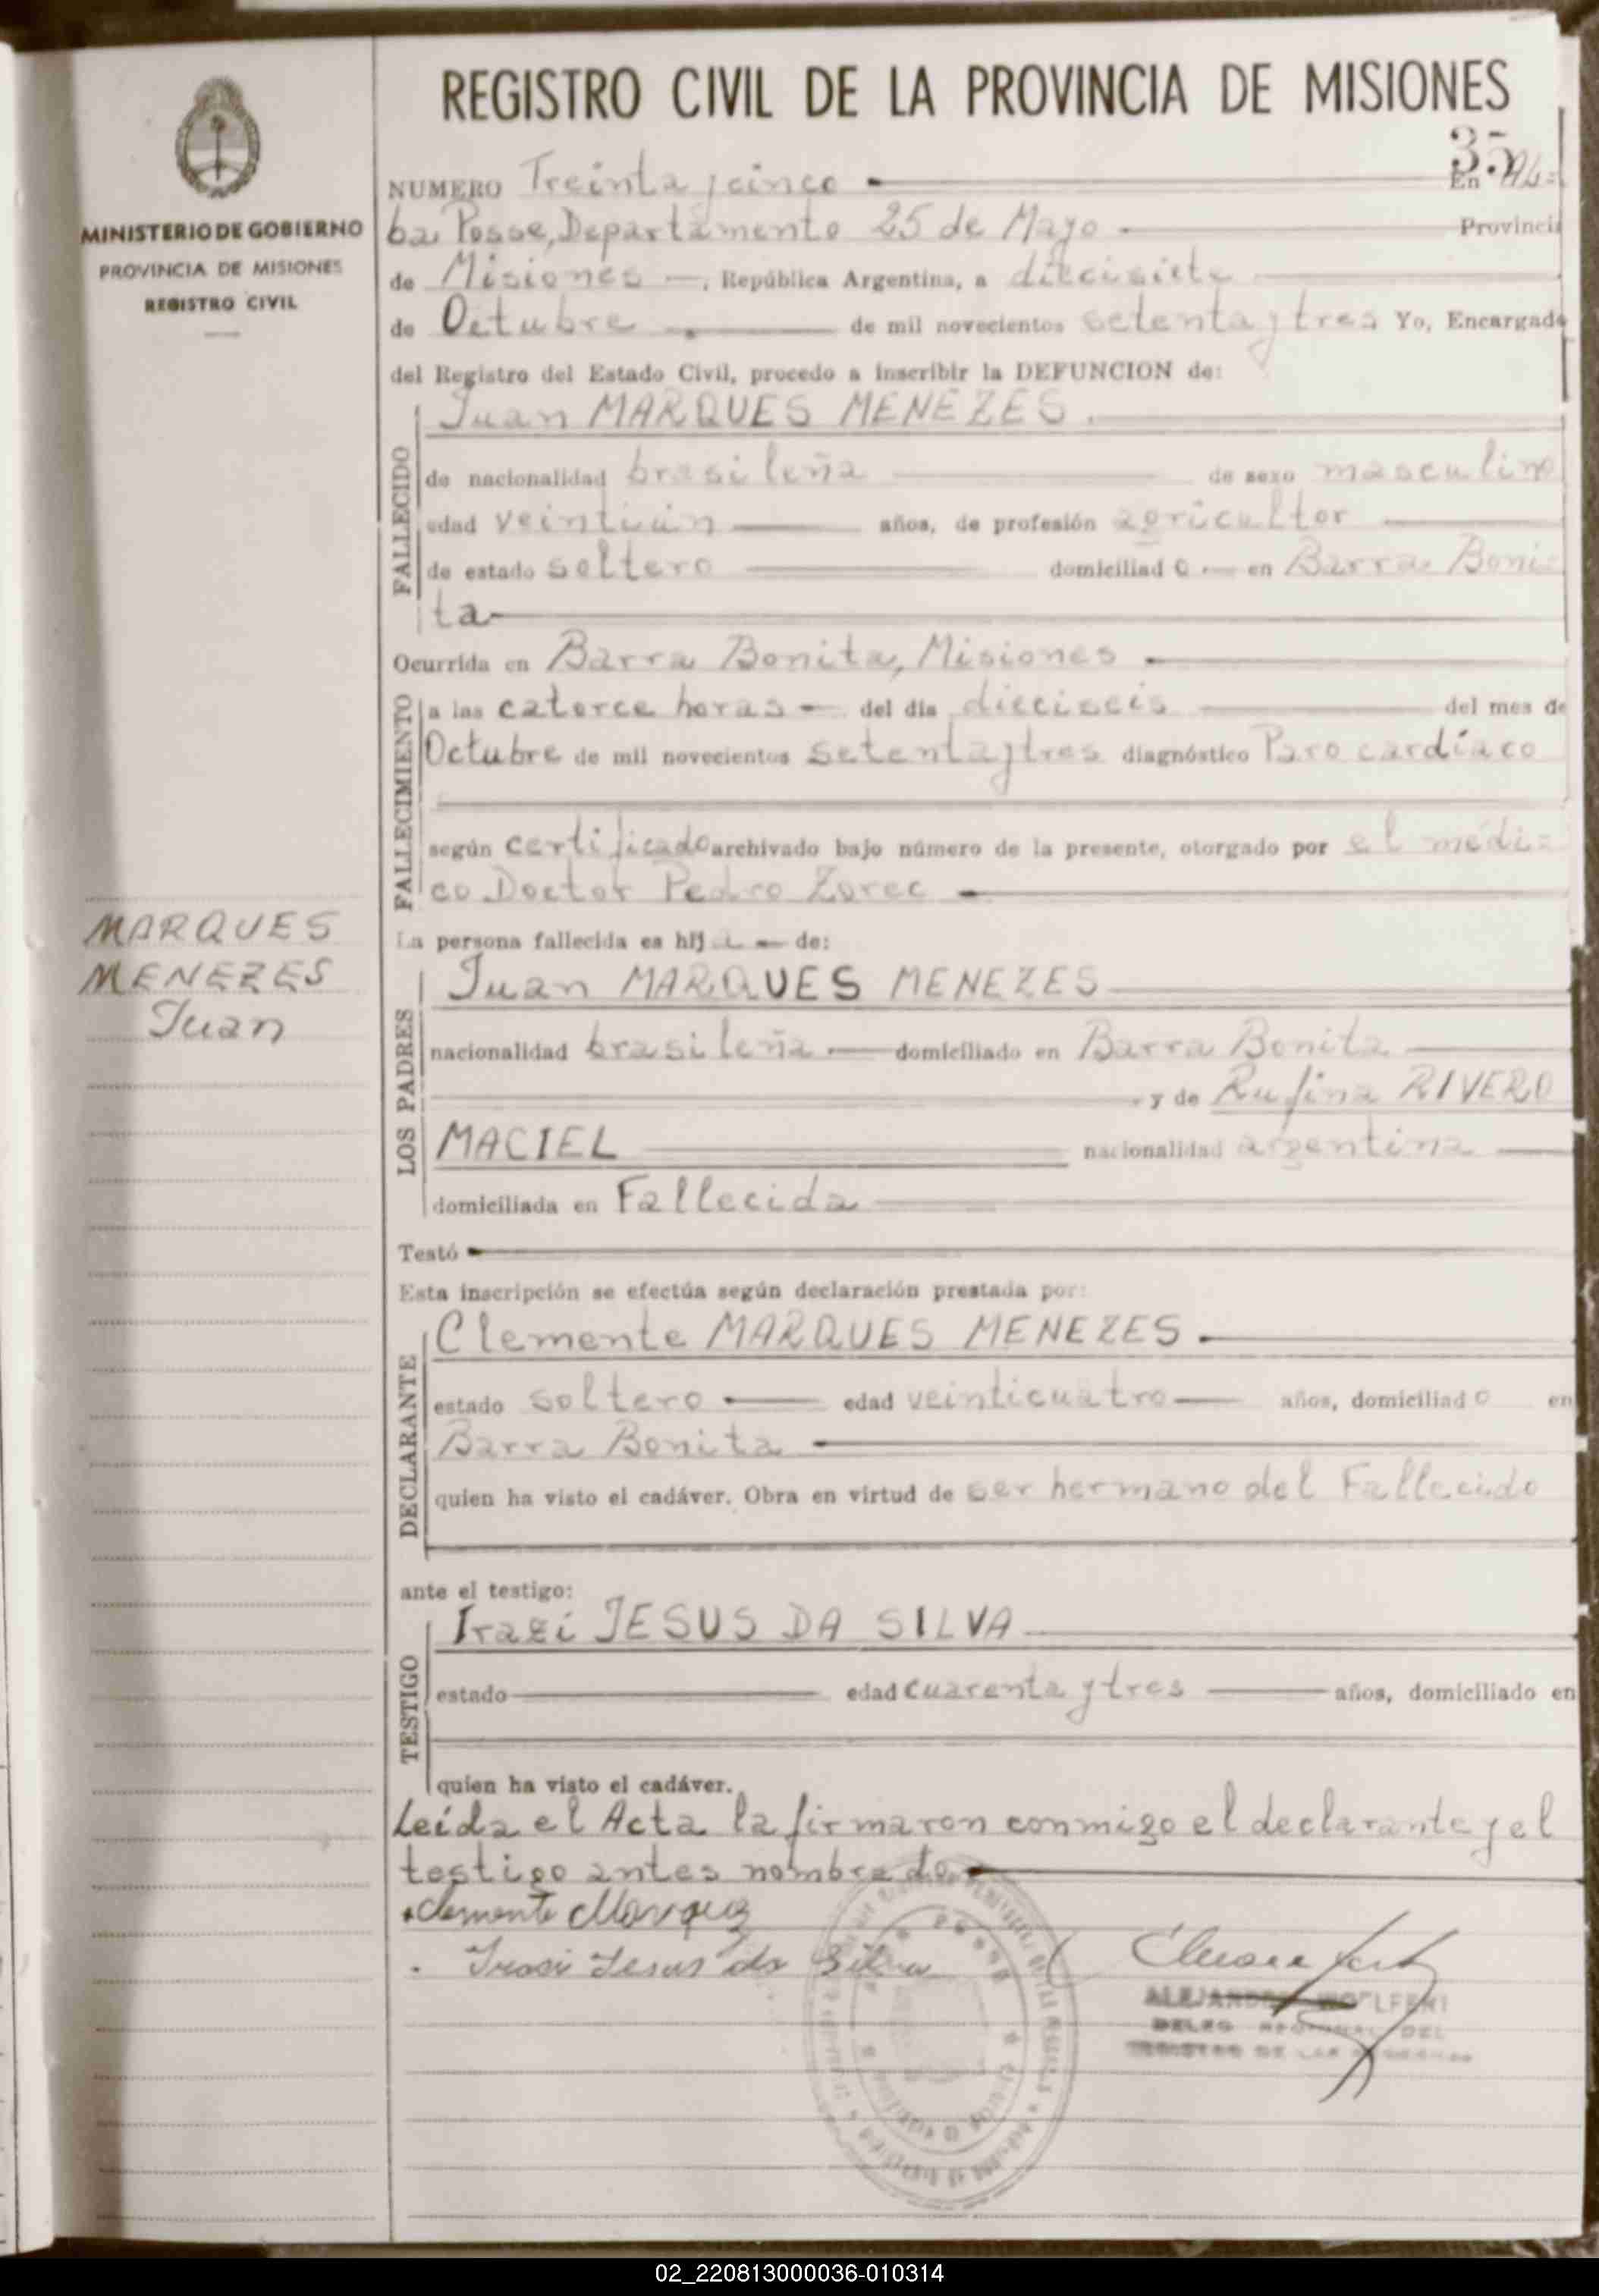 REGISTRO CIVIL DE LA PROVINCIA DE MISIONES
MINISTERIO DE GOBIERNO
PROVINCIA DE MISIONES
REGISTRO CIVIL
35
NUMERO Treinta y cinco En Al=
ba Posse, Departamento 25 de Mayo Provincia
de Misiones —, República Argentina, a diecisiete
de Octubre de mil novecientos setenta y tres Yo, Encargado
del Registro del Estado Civil, procedo a inscribir la DEFUNCION de:
FALLECIDO
Juan MARQUES MENEZES.
de nacionalidad brasileña de sexo masculino
edad veintiún años, de profesión agricultor
de estado soltero domiciliad o en Barra Boni=
ta
Ocurrida en Barra Bonita, Misiones
FALLECIMIENTO
a las catorce horas del día dieciseis del mes de
Octubre de mil novecientos setenta y tres diagnóstico Paro cardíaco
según certificado archivado bajo número de la presente, otorgado por el médi=
co Doctor Pedro Zorec
MARQUES
MENEZES
Juan
La persona fallecida es hij o de:
LOS PADRES
Juan MARQUES MENEZES
nacionalidad brasileña domiciliado en Barra Bonita
y de Rufina RIVERO
MACIEL nacionalidad argentina
domiciliada en Fallecida
Testó
Esta inscripción se efectúa según declaración prestada por:
DECLARANTE
Clemente MARQUES MENEZES
estado soltero edad veinticuatro años, domiciliad o en
Barra Bonita
quien ha visto el cadáver. Obra en virtud de ser hermano del Fallecido
ante el testigo:
TESTIGO
Irazí JESUS DA SILVA
estado edad cuarenta y tres años, domiciliado en
quien ha visto el cadáver.
Leída el Acta la firmaron conmigo el declarante y el
testigo antes nombrado
Clemente Marquez
Irasi Jesus da Silva
02_220813000036-010314